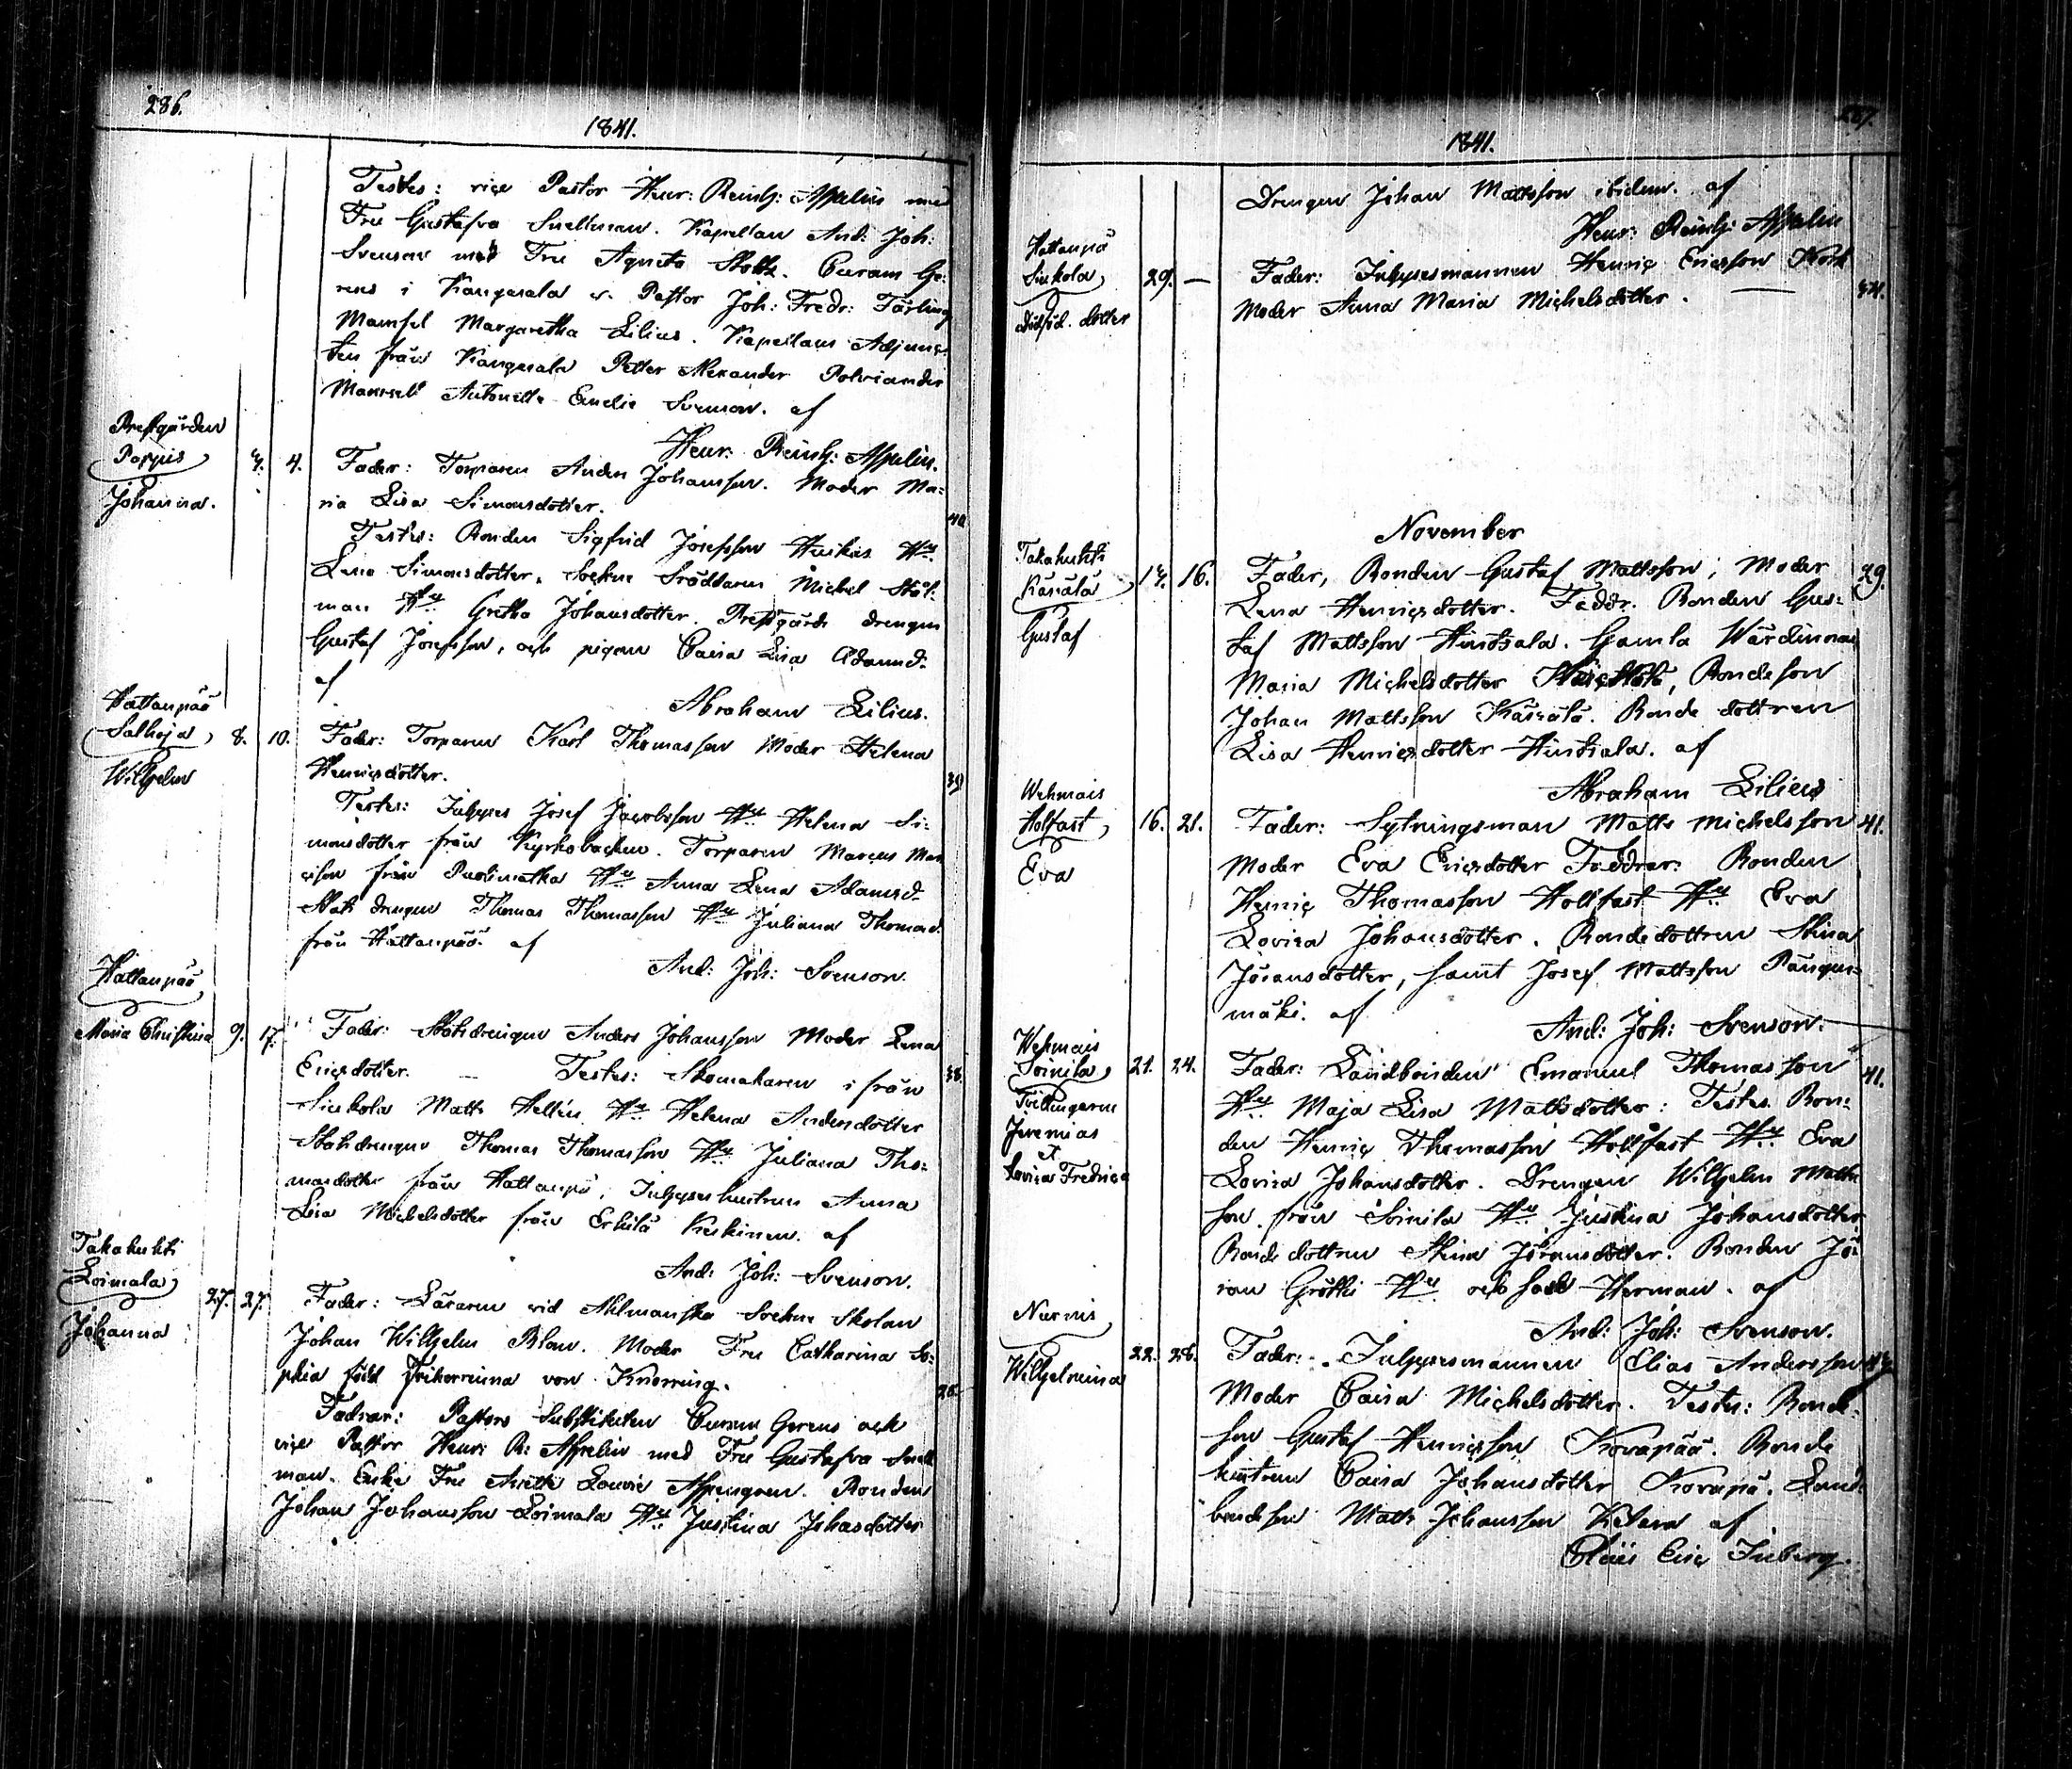 286.
1841.
Testes: vice Pastor Henr: Reinh: Appelin med
Fru Gustafva Snellman. Kapellan And: Joh:
Svenson med Fru Agneta Curam Ge-
rens i Kangasala v. Pastor Joh: Fredr:
Mamsel Margaretha Lilius. Kapellans Adjunc-
ten från Kangasala Petter Alexander Polviander
Mamsell Antonette Emelie Svenson. af
Henr: Reinh: Appelin.
Prestgården
Pappis
Johanna.
4. Fader: Torparen Anders Johansson. Moder Ma-
ria Lisa Simonsdotter.
40
Testes: Bonden Sigfrid Josefsson Huikas Hu
Lena Simonsdotter. Sockne Skräddaren Michel Stål-
man Hu Gretha Johansdotter. Prestgårds drengen
Gustaf Josefsson, och pigan Caisa Lisa Adamsd.
af
Abraham Lilius.
Hattanpää
Salhoja
Wilhelm
8. 10. Fader: Torparen Karl Thomasson Moder Helena
Henricsdotter.
39
Testes: Inhyses Josef Jacobsson Hu Helena Si-
monsdotter från Kyrkobacken. Torparen Marcus Mar-
cisson från Puolimatka Hu Anna Lena Adamsd.
Stats drengen Thomas Thomasson Hu Juliana Thomasd.
från Hattanpää. af
And: Joh: Svenson.
Hattanpää
Maria Christina
9. 17. Fader: Statsdrengen Anders Johansson Moder Lena
Ericsdotter. — Testes: Skomakaren ifrån
38.
Sinkola Matts Hellén Hu Helena Andersdotter
Statsdrengen Thomas Thomasson Hu Juliana Tho-
masdotter från Hattanpä, Inhyseshustrun Anna
Lisa Michelsdotter från Erkilä Keskinen. af
And: Joh: Svenson.
Takahuhti
Loimala
Johanna
27. 27. Fader: Läraren vid Ahlmanska Sockne Skolan
Johan Wilhelm Blom. Moder Fru Catharina So-
phia född Friherrinna von Knorring.
26.
Faddrar: Pastors Substituten Curam Gerens och
vice Pastor Henr: R: Appelin med Fru Gustafva Snell-
man. Enke Fru Lovisa Aspengren. Bonden
Johan Johansson Loimala Hu Justina Johansdotter
287.
1841.
Drengen Johan Mattsson ibidem. af
Henr: Reinh: Appelin
Hattanpä
Sinkola
dödföd. dotter
29. — Fader: Inhysesmannen Henric Ericsson
Moder Anna Maria Michelsdotter. —
34.
November
Takahuhti
Käsälä
Gustaf
14. 16. Fader, Bonden Gustaf Mattsson, Moder 29.
Lena Henricsdotter. Faddr. Bonden Gus-
taf Mattsson Hintsala. Gamla Wärdinnan
Maria Michelsdotter Bondeson
Johan Mattsson Käsälä. Bonde dottren
Lisa Henricsdotter Hintsala. af
Abraham Lilius
Wehmais
Holfast
Eva
16. 21. Fader: Sytningsman Matts Michelsson 41.
Moder Eva Ericsdotter Faddrar: Bonden
Henric Thomasson Hollfast Hu Eva
Lovisa Johansdotter. Bondedottren Stina
Jöransdotter, samt Josef Mattsson Pängen-
mäki. af
And: Joh: Svenson.
Wehmais
Soinila
Tvillingarne
Jeremias
&
Lovisa Fredrica
21. 24. Fader: Landbonden Emanuel Thomasson 41.
Hu Maja Lisa Mattsdotter: Testes Bon-
den Henric Thomasson Hollfast Hu Eva
Lovisa Johansdotter. Drengen Wilhelm Matts-
son från Soinila Hu Justina Johansdotter
Bonde dottren Stina Jöransdotter. Bonden Jö-
ran Grötti Hu och Son Herman. af
And: Joh: Svenson.
Nurmis
Wilhelmina
22. 28. Fader: Inhysesmannen Elias Andersson
Moder Caisa Michelsdotter. Testes: Bonde-
son Gustaf Henricsson Kovapää. Bonde
hustrun Caisa Johansdotter Kovapä. Land-
bondeson Matts Johansson Ketara af
Claës Eric Inberg.